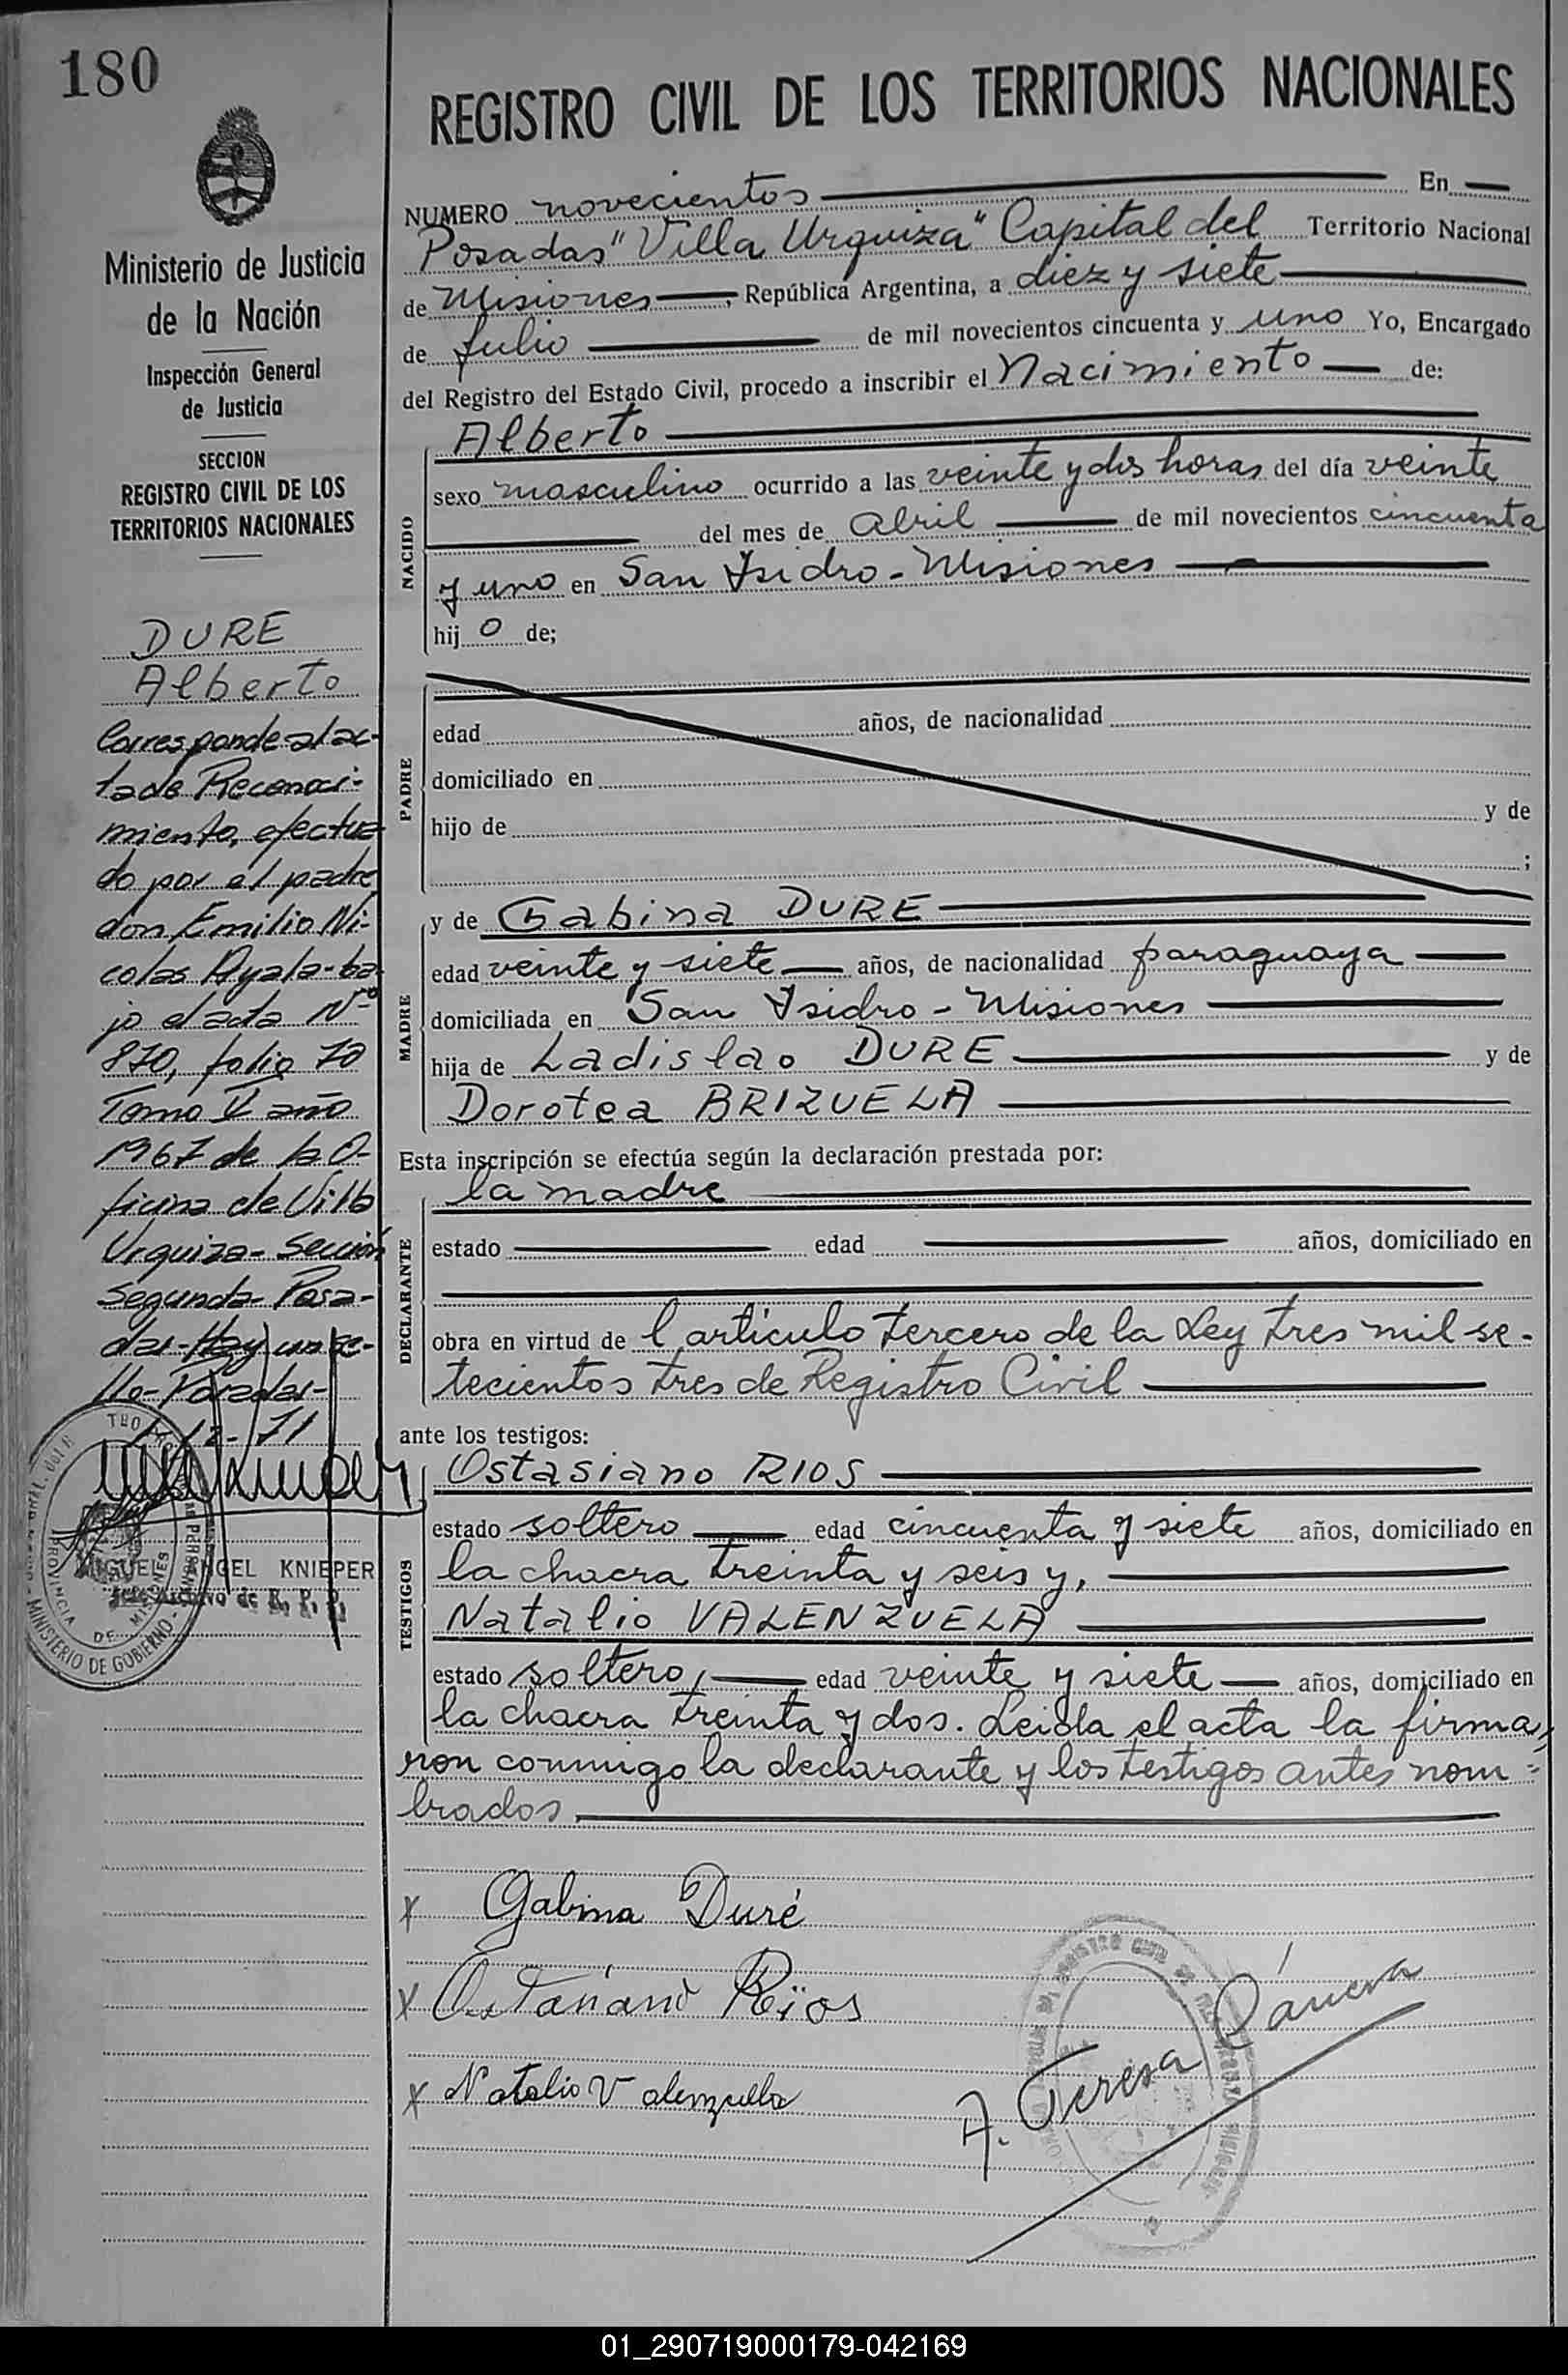 180
Ministerio de Justicia
de la Nación
Inspección General
de Justicia
SECCION
REGISTRO CIVIL DE LOS
TERRITORIOS NACIONALES
DURE
Alberto
Corresponde al ac-
ta de Reconoci-
miento, efectua
do por el padre
don Emilio Ni-
colas Ayala-ba
jo el acta Nº
870, folio 70
Tomo V año
1967 de la O-
ficina de Villa
Urquiza-Sección
Segunda-Posa-
das-Hay un se-
llo-Posadas-
12-71
MIGUEL ANGEL KNIEPER
Jefe Archivo de R. P. P.
PROVINCIA DE MISIONES
MINISTERIO DE GOBIERNO
REGISTRO CIVIL DE LOS TERRITORIOS NACIONALES
NUMERO novecientos En
Posadas "Villa Urquiza" Capital del Territorio Nacional
de Misiones, República Argentina, a diez y siete
de julio de mil novecientos cincuenta y uno Yo, Encargado
del Registro del Estado Civil, procedo a inscribir el Nacimiento de:
NACIDO
Alberto
sexo masculino ocurrido a las veinte y dos horas del día veinte
del mes de abril de mil novecientos cincuenta
y uno en San Isidro - Misiones
hij o de;
PADRE
edad años, de nacionalidad
domiciliado en
hijo de y de
;
MADRE
y de Gabina DURE
edad veinte y siete años, de nacionalidad paraguaya
domiciliada en San Isidro - Misiones
hija de Ladislao DURE y de
Dorotea BRIZUELA
Esta inscripción se efectúa según la declaración prestada por:
DECLARANTE
la madre
estado edad años, domiciliado en
obra en virtud de l artículo tercero de la Ley tres mil se-
tecientos tres de Registro Civil
ante los testigos:
TESTIGOS
Ostasiano RIOS
estado soltero edad cincuenta y siete años, domiciliado en
la chacra treinta y seis y,
Natalio VALENZUELA
estado soltero, edad veinte y siete años, domiciliado en
la chacra treinta y dos. Leida el acta la firma,
ron conmigo la declarante y los testigos antes nom-
brados.
x Gabina Duré
x Ostasiano Rïos
x Natalio Valenzuella
A. Teresa
01_290719000179-042169